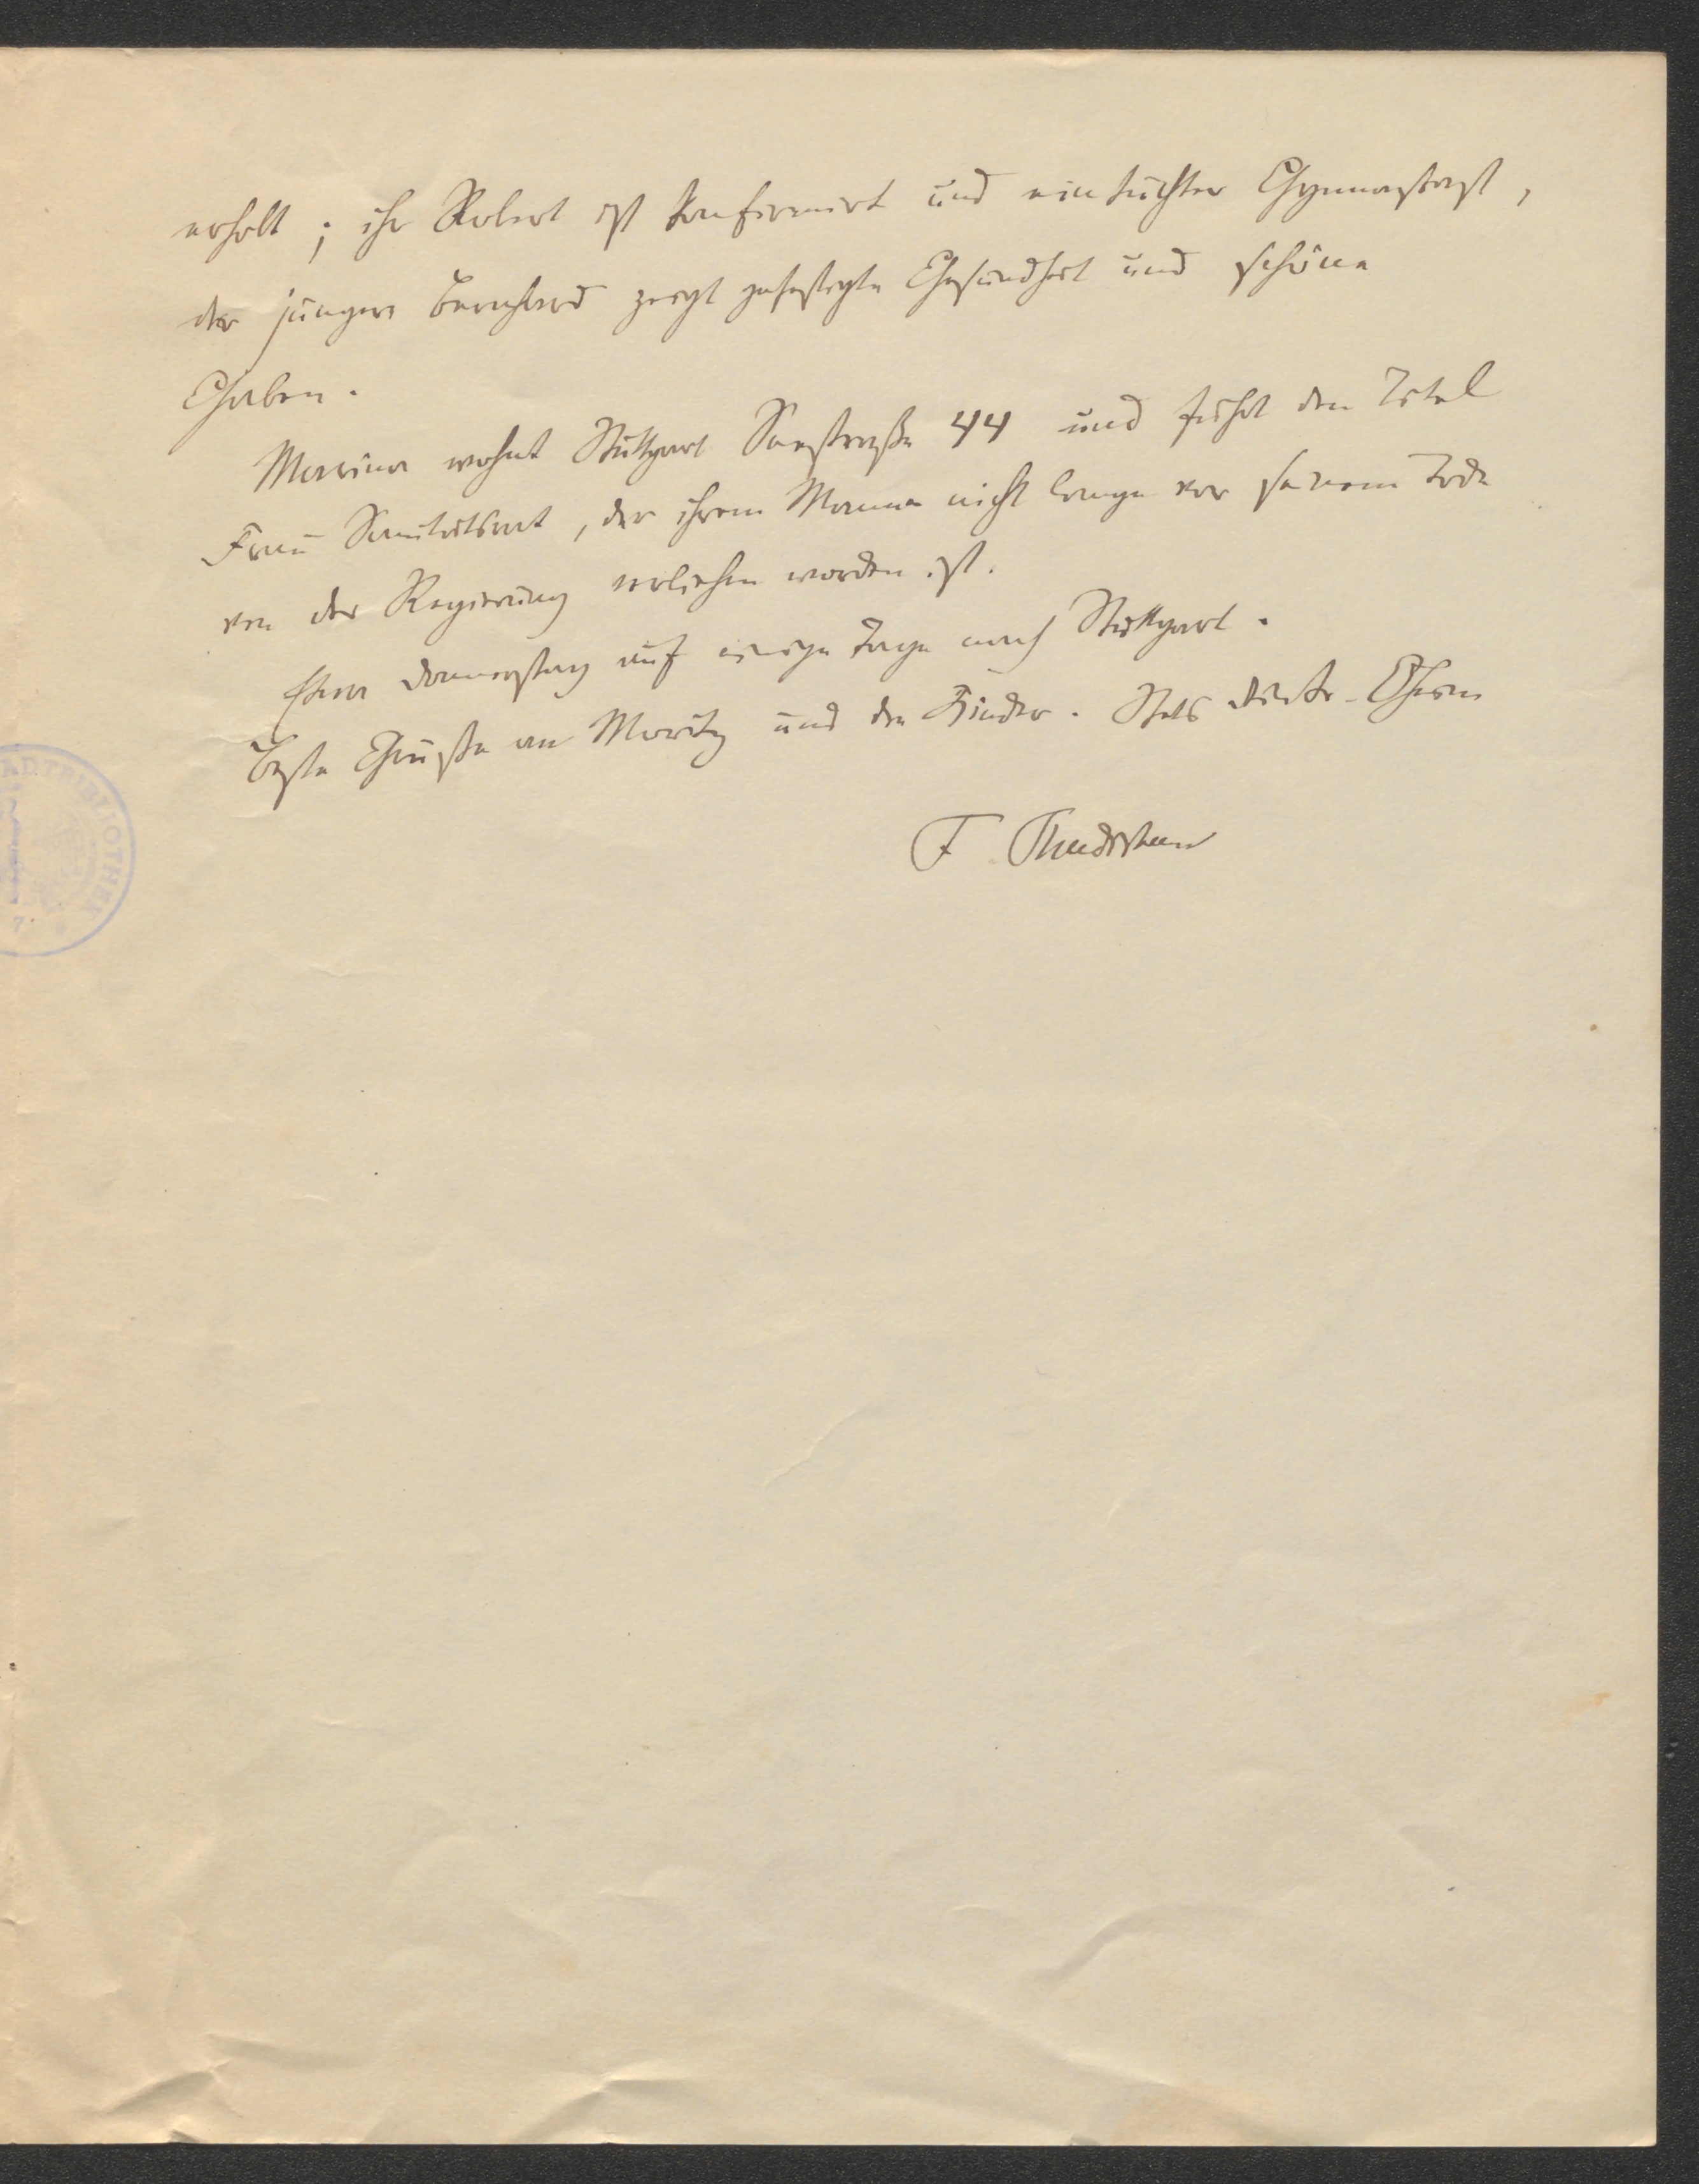 erholt; ihr Robert ist konfirmirt und ein tüchter Gymnasiast,
der jüngere Bernhard zeigt gefestigte Gesundheit und schöne
Gaben.
Marina wohnt Stuttgart Seestraße 44 und führt den Titel
Frau Sanitätsrat, der ihrem Manne nicht lange vor seinem Tode
von der Regierung verliehen worden ist.
Donnerstag auf einige Tage nach Stuttgart.
Beste Grüße an Moritz und die Kinder. Stets
F. Thudichum
STADTBIBLIOTHEK